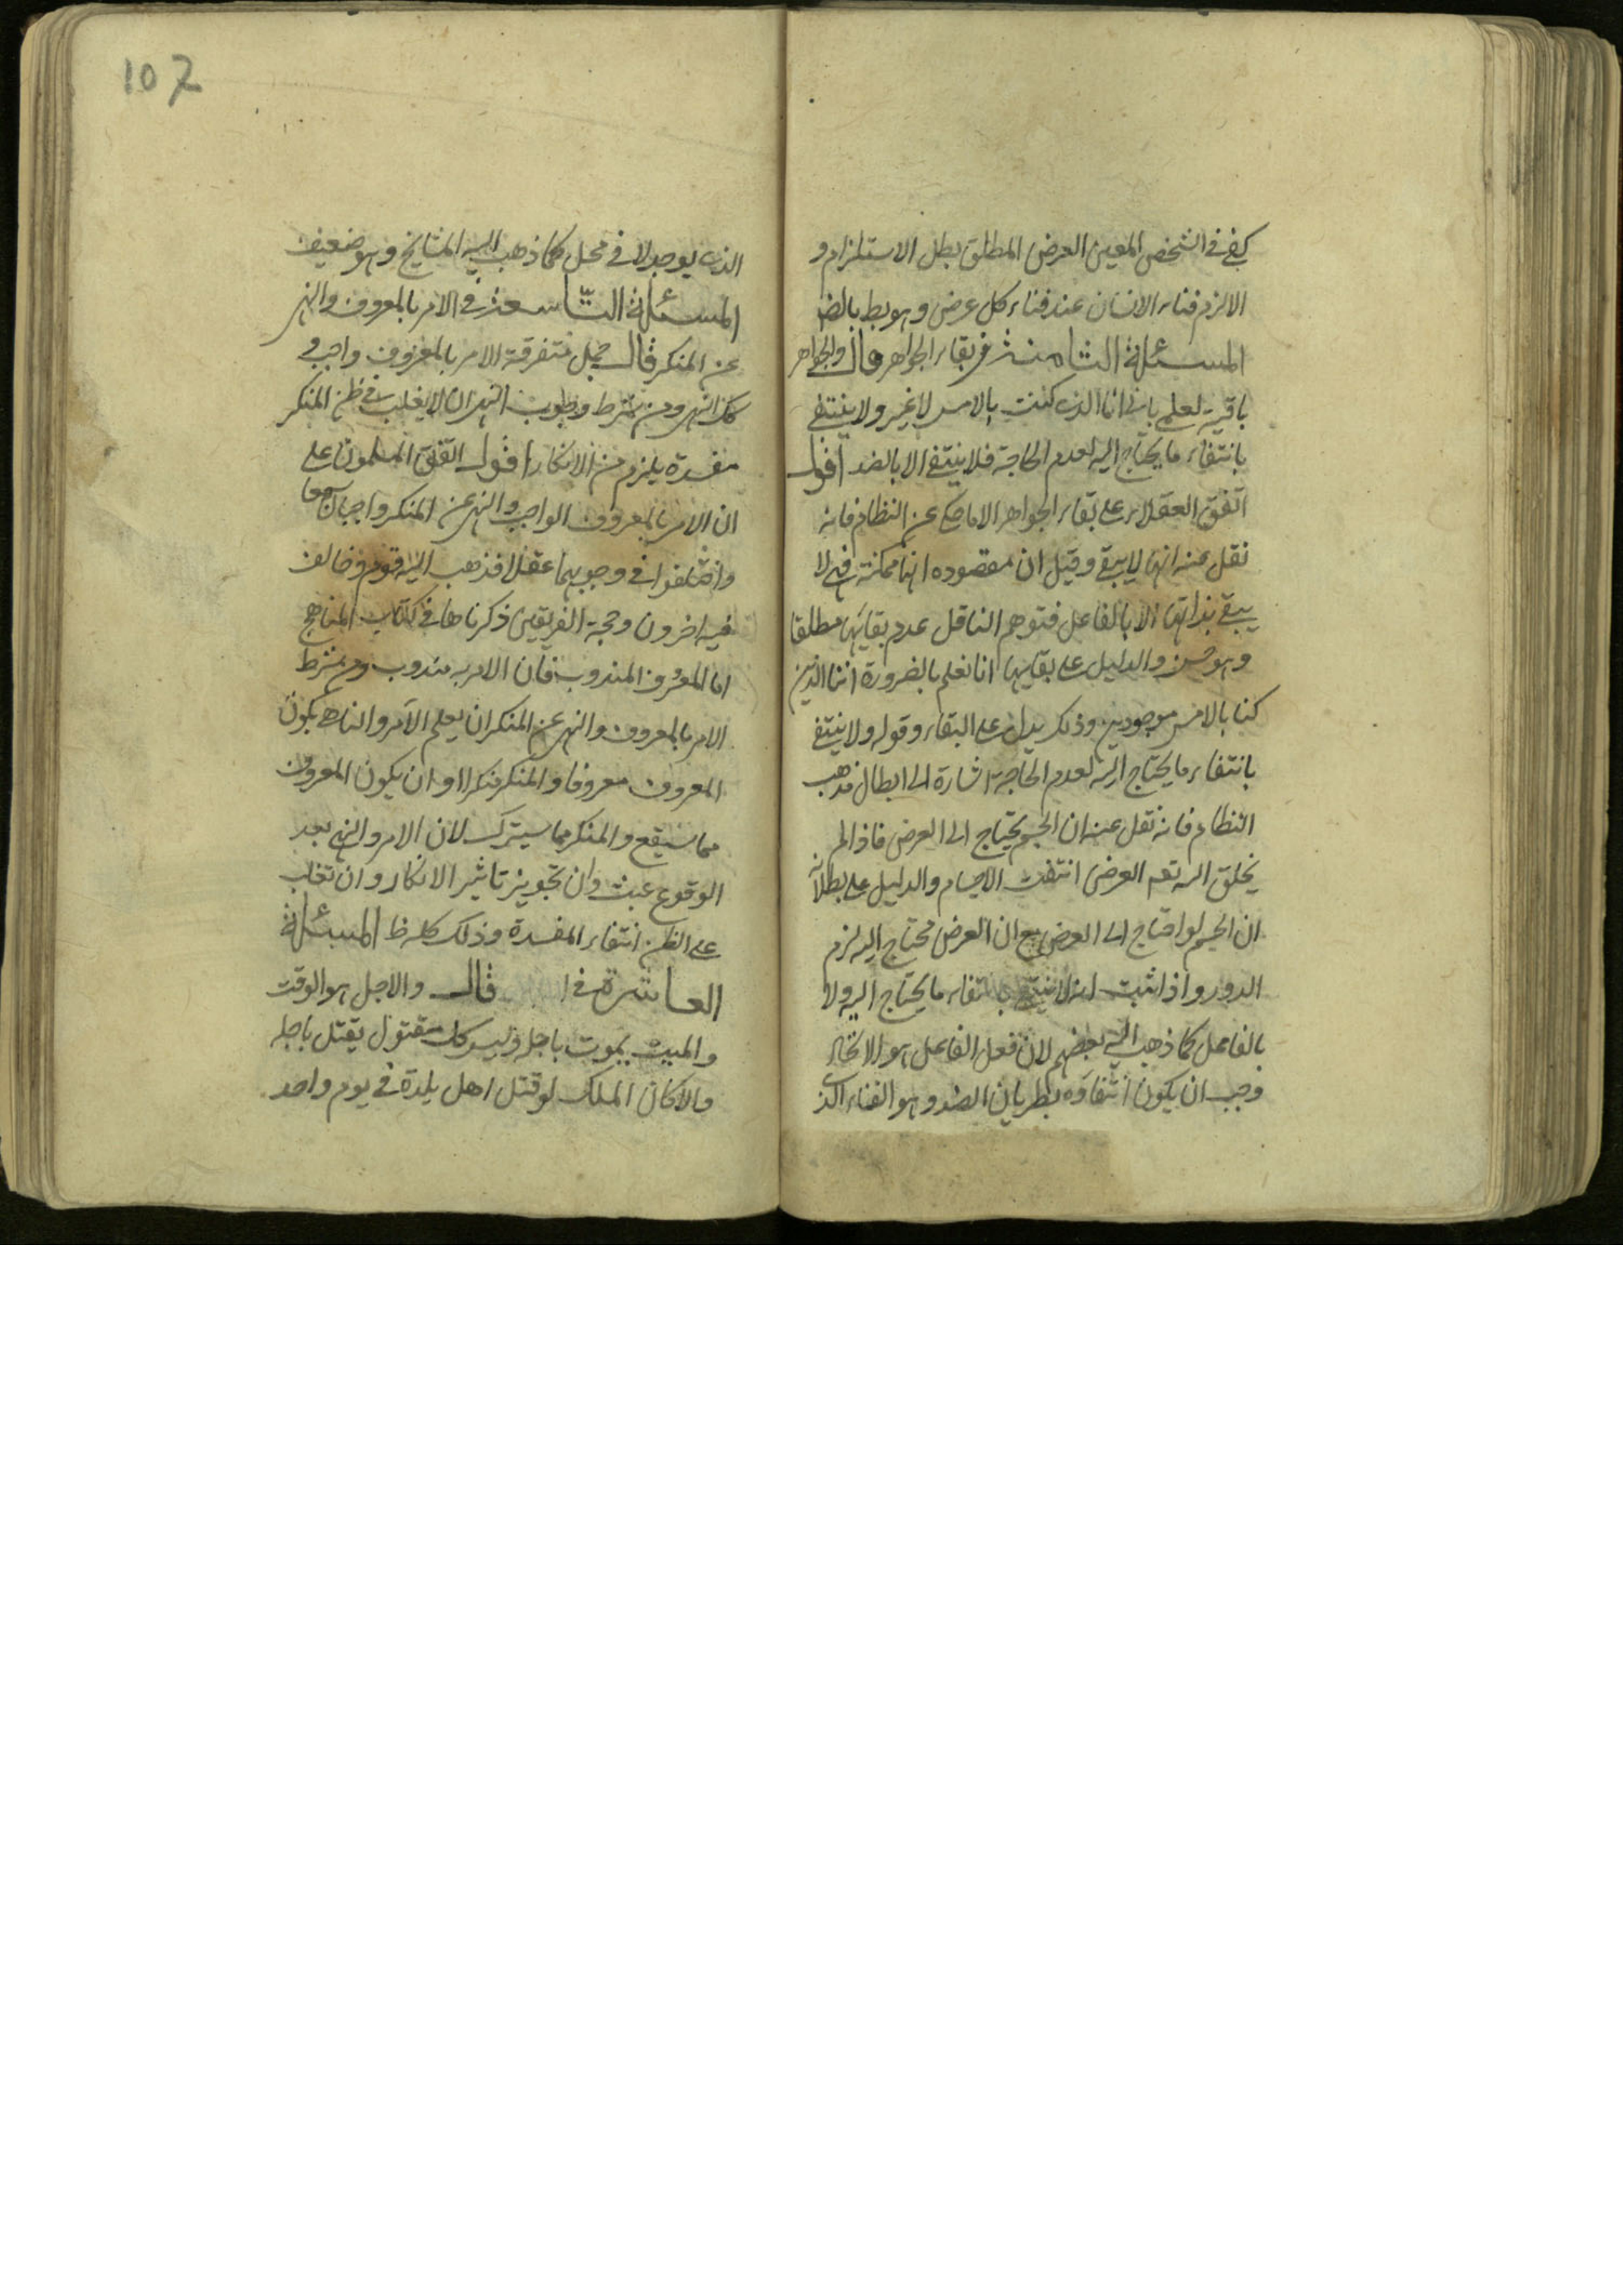 يكفي في الشخص المعين العرض المطلق بطل الاستلزام و
الا لزم فناء الانسان عند فناء كل عرض وهو بط بالضر
المسئلة الثامنة في بقاء الجواهر قال والجواهر
باقية لعلمي باني انا الذي كنت بالامس لا غير ولا ينتفي
بانتفاء ما يحتاج اليه لعدم الحاجة فلا ينتفي الا بالضد اقول
اتفق العقلاء على بقاء الجواهر الا ما حكي عن النظام فانه
نقل عنه انها لا يبقى وقيل ان مقصوده انها ممكنة فهي لا
يبقى بذاتها الا بالفاعل فتوهم الناقل عدم بقائها مطلقا
وهو حسن والدليل على بقائها انا نعلم بالضرورة اننا الذين
كنا بالامس موجودين وذلك يدل على البقاء وقوله ولا ينتفي
بانتفاء ما يحتاج اليه لعدم الحاجة اشارة الى ابطال مذهب
النظام فانه نقل عنه ان الجسم يحتاج الى العرض فاذا لم
يخلق الله تعم العرض انتفت الاجسام والدليل على بطلانه
ان الجسم لو احتاج الى العرض مع ان العرض محتاج اليه لزم
الدور واذا ثبت انه لا ينتفي بانتفاء ما يحتاج اليه ولا
بالفاعل كما ذهب اليه بعضهم لان فعل الفاعل هو الايجاد
وجب ان يكون انتفاؤه بطريان الضد وهو الفناء الذي
107
الذي يوجد لا في محل كما ذهب اليه المشايخ وهو ضعيف
المسئلة التاسعة في الامر بالمعروف والنهي
عن المنكر قال جمل متفرقة الامر بالمعروف واجب و
كذا النهي ومن شرط وجوب النهي ان لا يغلب في ظن المنكر
مفسدة يلزم من الانكار اقول اتفق المسلمون على
ان الامر بالمعروف الواجب والنهي عن المنكر واجبان سمعا
واختلفوا في وجوبهما عقلا فذهب اليه قوم وخالف
فيه اخرون وحجة الفريقين ذكرناها في كتاب المناهج
اما المعروف المندوب فان الامر به مندوب ومن شرط
الامر بالمعروف والنهي عن المنكر ان يعلم الآمر والناهي بكون
المعروف معروفا والمنكر منكرا وان يكون المعروف
مما سيقع والمنكر مما سيترك لان الامر والنهي بعد
الوقوع عبث وان تجويز تاثير الانكار وان تغلب
على الظن انتفاء المفسدة وذلك كله ظ المسئلة
العاشرة في قال والاجل هو الوقت
والميت يموت باجله وليس كل مقتول يقتل باجله
والا كان الملك لو قتل اهل بلدة في يوم واحد